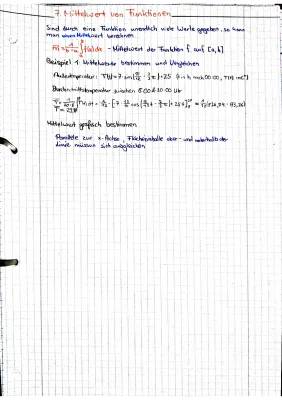 7. Mittelwert von Funktionen
Sind durch eine Funktion unendlich viele Werte gegeben, so kann
man einen Mittelwert berechnen
m̄ = 1/(b-a) ∫ f(x)dx - Mittelwert der Funktion f auf [a,b]
Beispiel 1 Mittelwerte bestimmen und Vergleichen
Außentemperatur: T(t) = 7·sin( ) + 25 (t in h nach 00:00, T(t) in C°)
Durchschnittstemperatur zwischen 8:00 & 20:00 Uhr
Mittelwert grafisch bestimmen
Parallele zur x-Achse, Flächeninhalte ober- und unterhalb der
Linie müssen sich ausgleichen